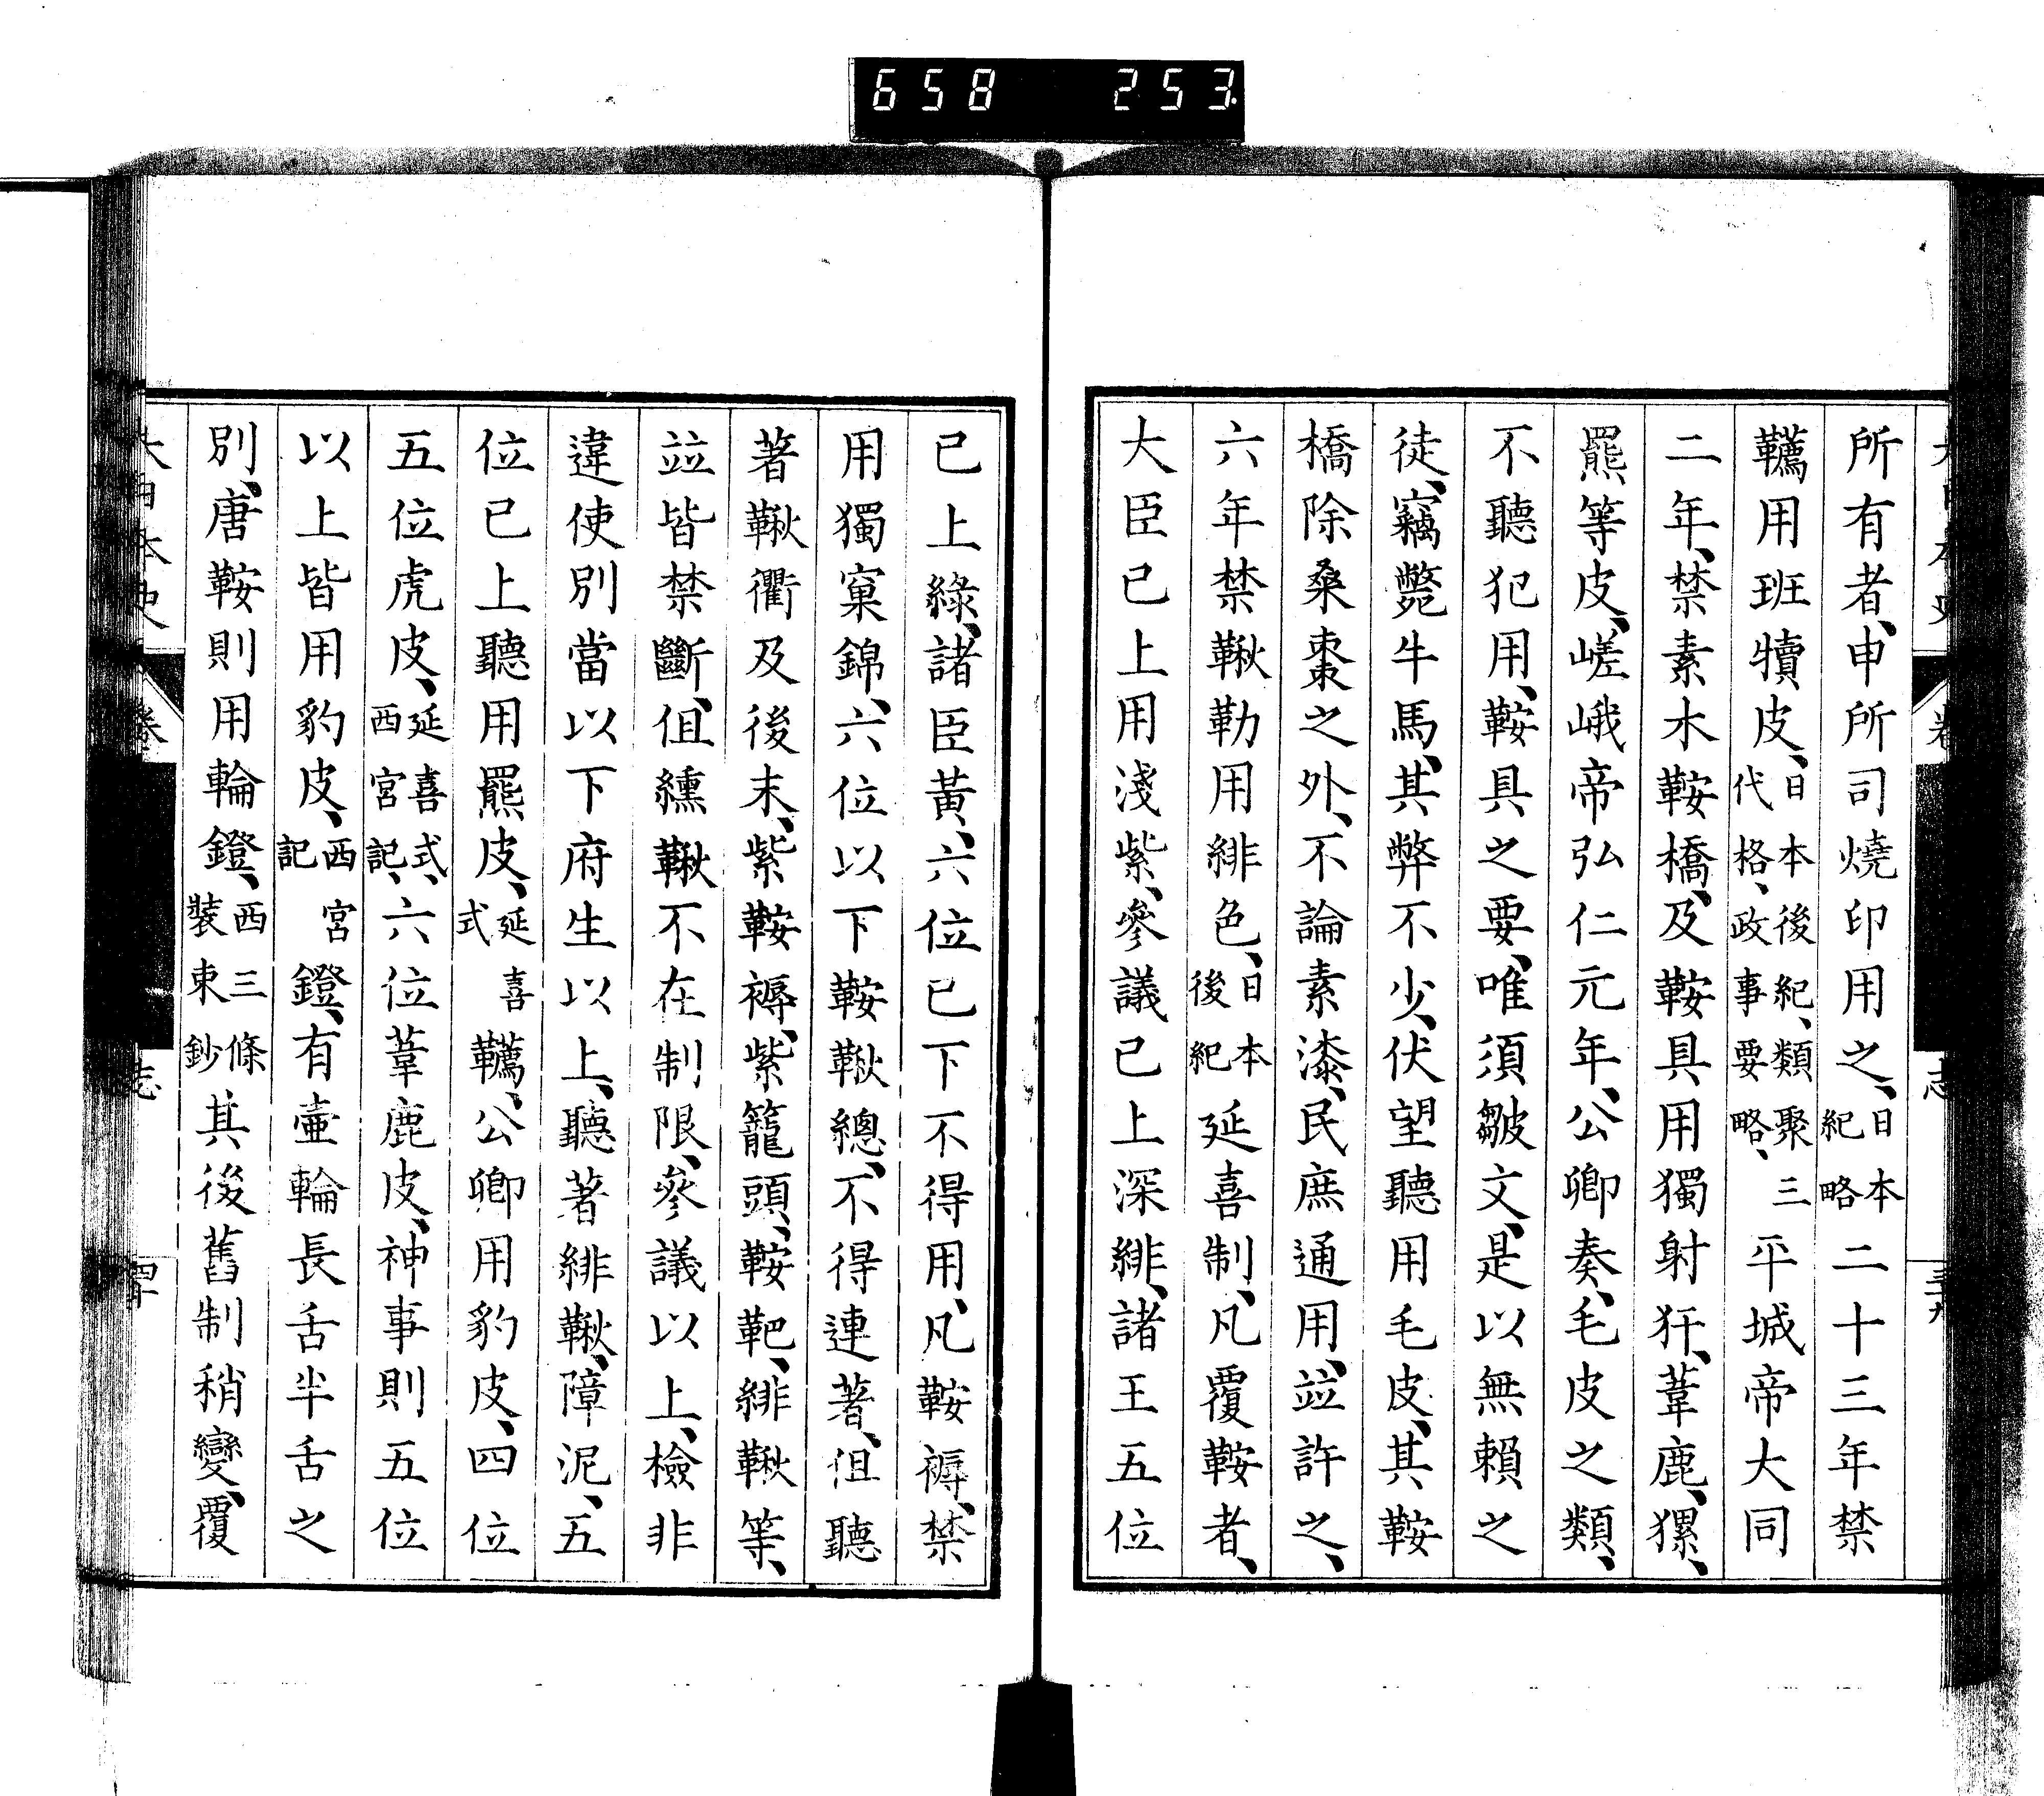 658 253.
所有者、申所司燒印用之、日本紀略二十三年禁
韉用班犢皮、日本後紀、類聚三代格、政事要略、平城帝大同
二年、禁素木鞍橋、及鞍具用獨射犴、葦鹿、猱、
羆等皮、嵯峨帝弘仁元年、公卿奏、毛皮之類、
不聽犯用、鞍具之要、唯須皺文、是以無賴之
徒、竊斃牛馬、其弊不少、伏望聽用毛皮、其鞍
橋除桑棗之外、不論素漆、民庶通用、竝許之、
六年禁鞦勒用緋色、日本後紀延喜制、凡覆鞍者、
大臣已上用淺紫、參議已上深緋、諸王五位
已上綠、諸臣黃、六位已下不得用、凡鞍褥、禁
用獨窠錦、六位以下鞍鞦總、不得連著、但聽
著鞦衢及後末、紫鞍褥、紫籠頭、鞍靶、緋鞦等、
竝皆禁斷、但纁鞦不在制限、參議以上、檢非
違使別當以下府生以上、聽著緋鞦、障泥、五
位已上聽用羆皮、延喜式韉、公卿用豹皮、四位
五位虎皮、延喜式、西宮記、六位葦鹿皮、神事則五位
以上皆用豹皮、西宮記鐙、有壷輪長舌半舌之
別、唐鞍則用輪鐙、西三條裝束鈔其後舊制稍變、覆